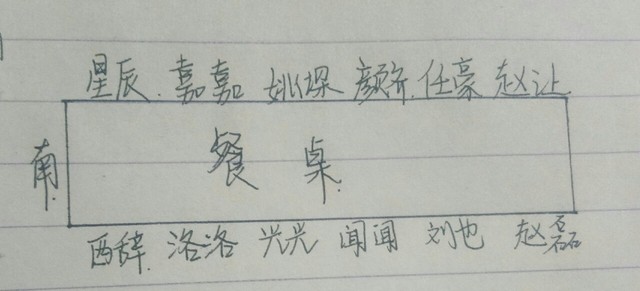 星辰.嘉嘉 姚琛 颜齐.任豪 赵让
南.
餐 桌.
西辞.洛洛 光光 闻闻 刘也 赵磊